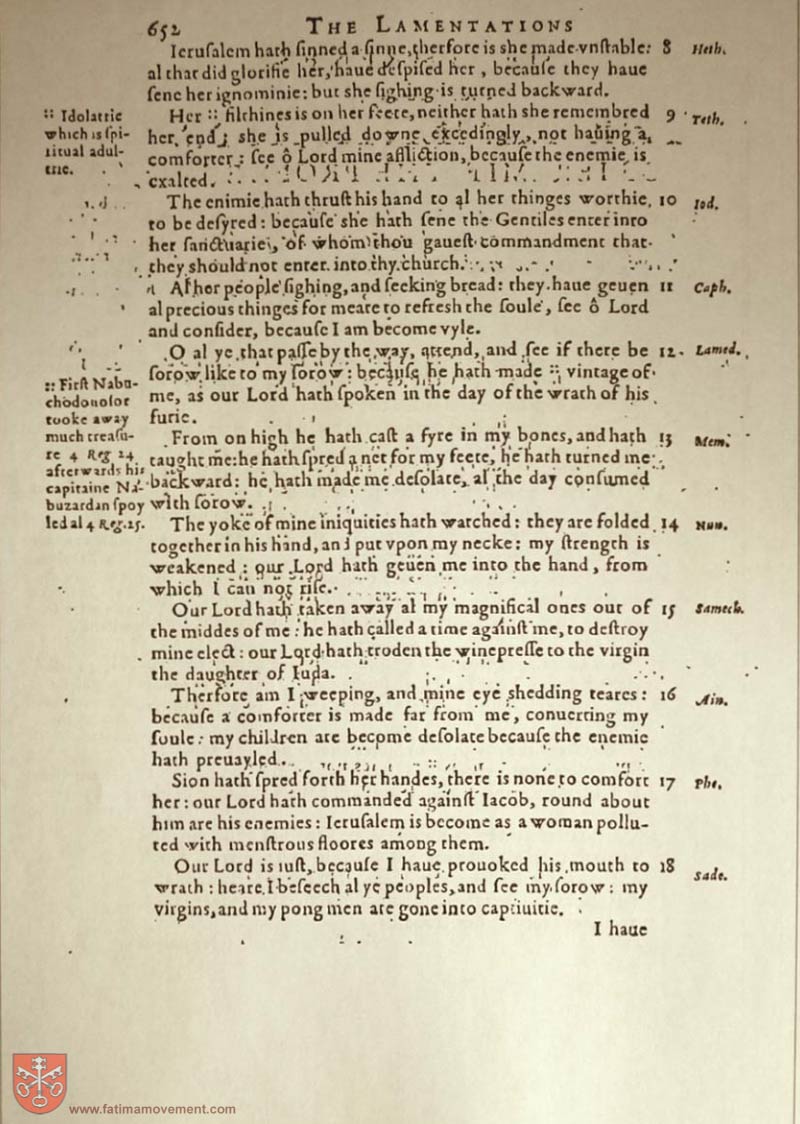 652 THE LAMENTATIONS
Ierusalem hath sinned a sinne, therfore is she made vnstable: 8 Heth.
al that did glorifie her, haue despised her, because they haue
sene her ignominie: but she sighing is turned backward.
Her :: filthines is on her feete, neither hath she remembred 9 Teth.
her end; she is pulled downe excedingly, not hauing a
comforter: see ô Lord mine affliction, because the enemie is
exalted.
:: Idolatrie
which is spi-
ritual adul-
trie.
The enimie hath thrust his hand to al her thinges worthie 10 Iod.
to be desyred: because she hath sene the Gentiles enter into
her sanctuarie, of whom thou gauest commandment that
they should not enter into thy church.
Al her people sighing, and seeking bread: they haue geuen 11 Caph.
al precious thinges for meate to refresh the soule, see ô Lord
and consider, because I am become vyle.
O al ye that passe by the way, attend, and see if there be 12 Lamed.
sorow like to my sorow: because he hath made :: vintage of
me, as our Lord hath spoken in the day of the wrath of his
furie.
:: First Nabu-
chodonosor
tooke away
much treasu-
re 4 Reg 24
afterwards his
capitaine Na-
buzardan spoy
led al 4 Reg. 25.
From on high he hath cast a fyre in my bones, and hath 13 Mem.
taught me: he hath spred a net for my feete, he hath turned me
backward: he hath made me desolate, al the day consumed
with sorow.
The yoke of mine iniquities hath watched: they are folded 14 Nun.
together in his hand, and put vpon my necke: my strength is
weakened: our Lord hath geuen me into the hand, from
which I can not rise.
Our Lord hath taken away al my magnifical ones out of 15 Samech.
the middes of me: he hath called a time against me, to destroy
mine elect: our Lord hath troden the winepresse to the virgin
the daughter of Iuda.
Therfore am I weeping, and mine eye shedding teares: 16 Ain.
because a comforter is made far from me, conuerting my
soule: my children are become desolate because the enemie
hath preuayled.
Sion hath spred forth her handes, there is none to comfort 17 Phe.
her: our Lord hath commanded against Iacob, round about
him are his enemies: Ierusalem is become as a woman pollu-
ted with menstrous floores among them.
Our Lord is iust, because I haue prouoked his mouth to 18 Sade.
wrath: heare I beseech al ye peoples, and see my sorow: my
virgins, and my pong men are gone into captiuitie.
I haue
www.fatimamovement.com